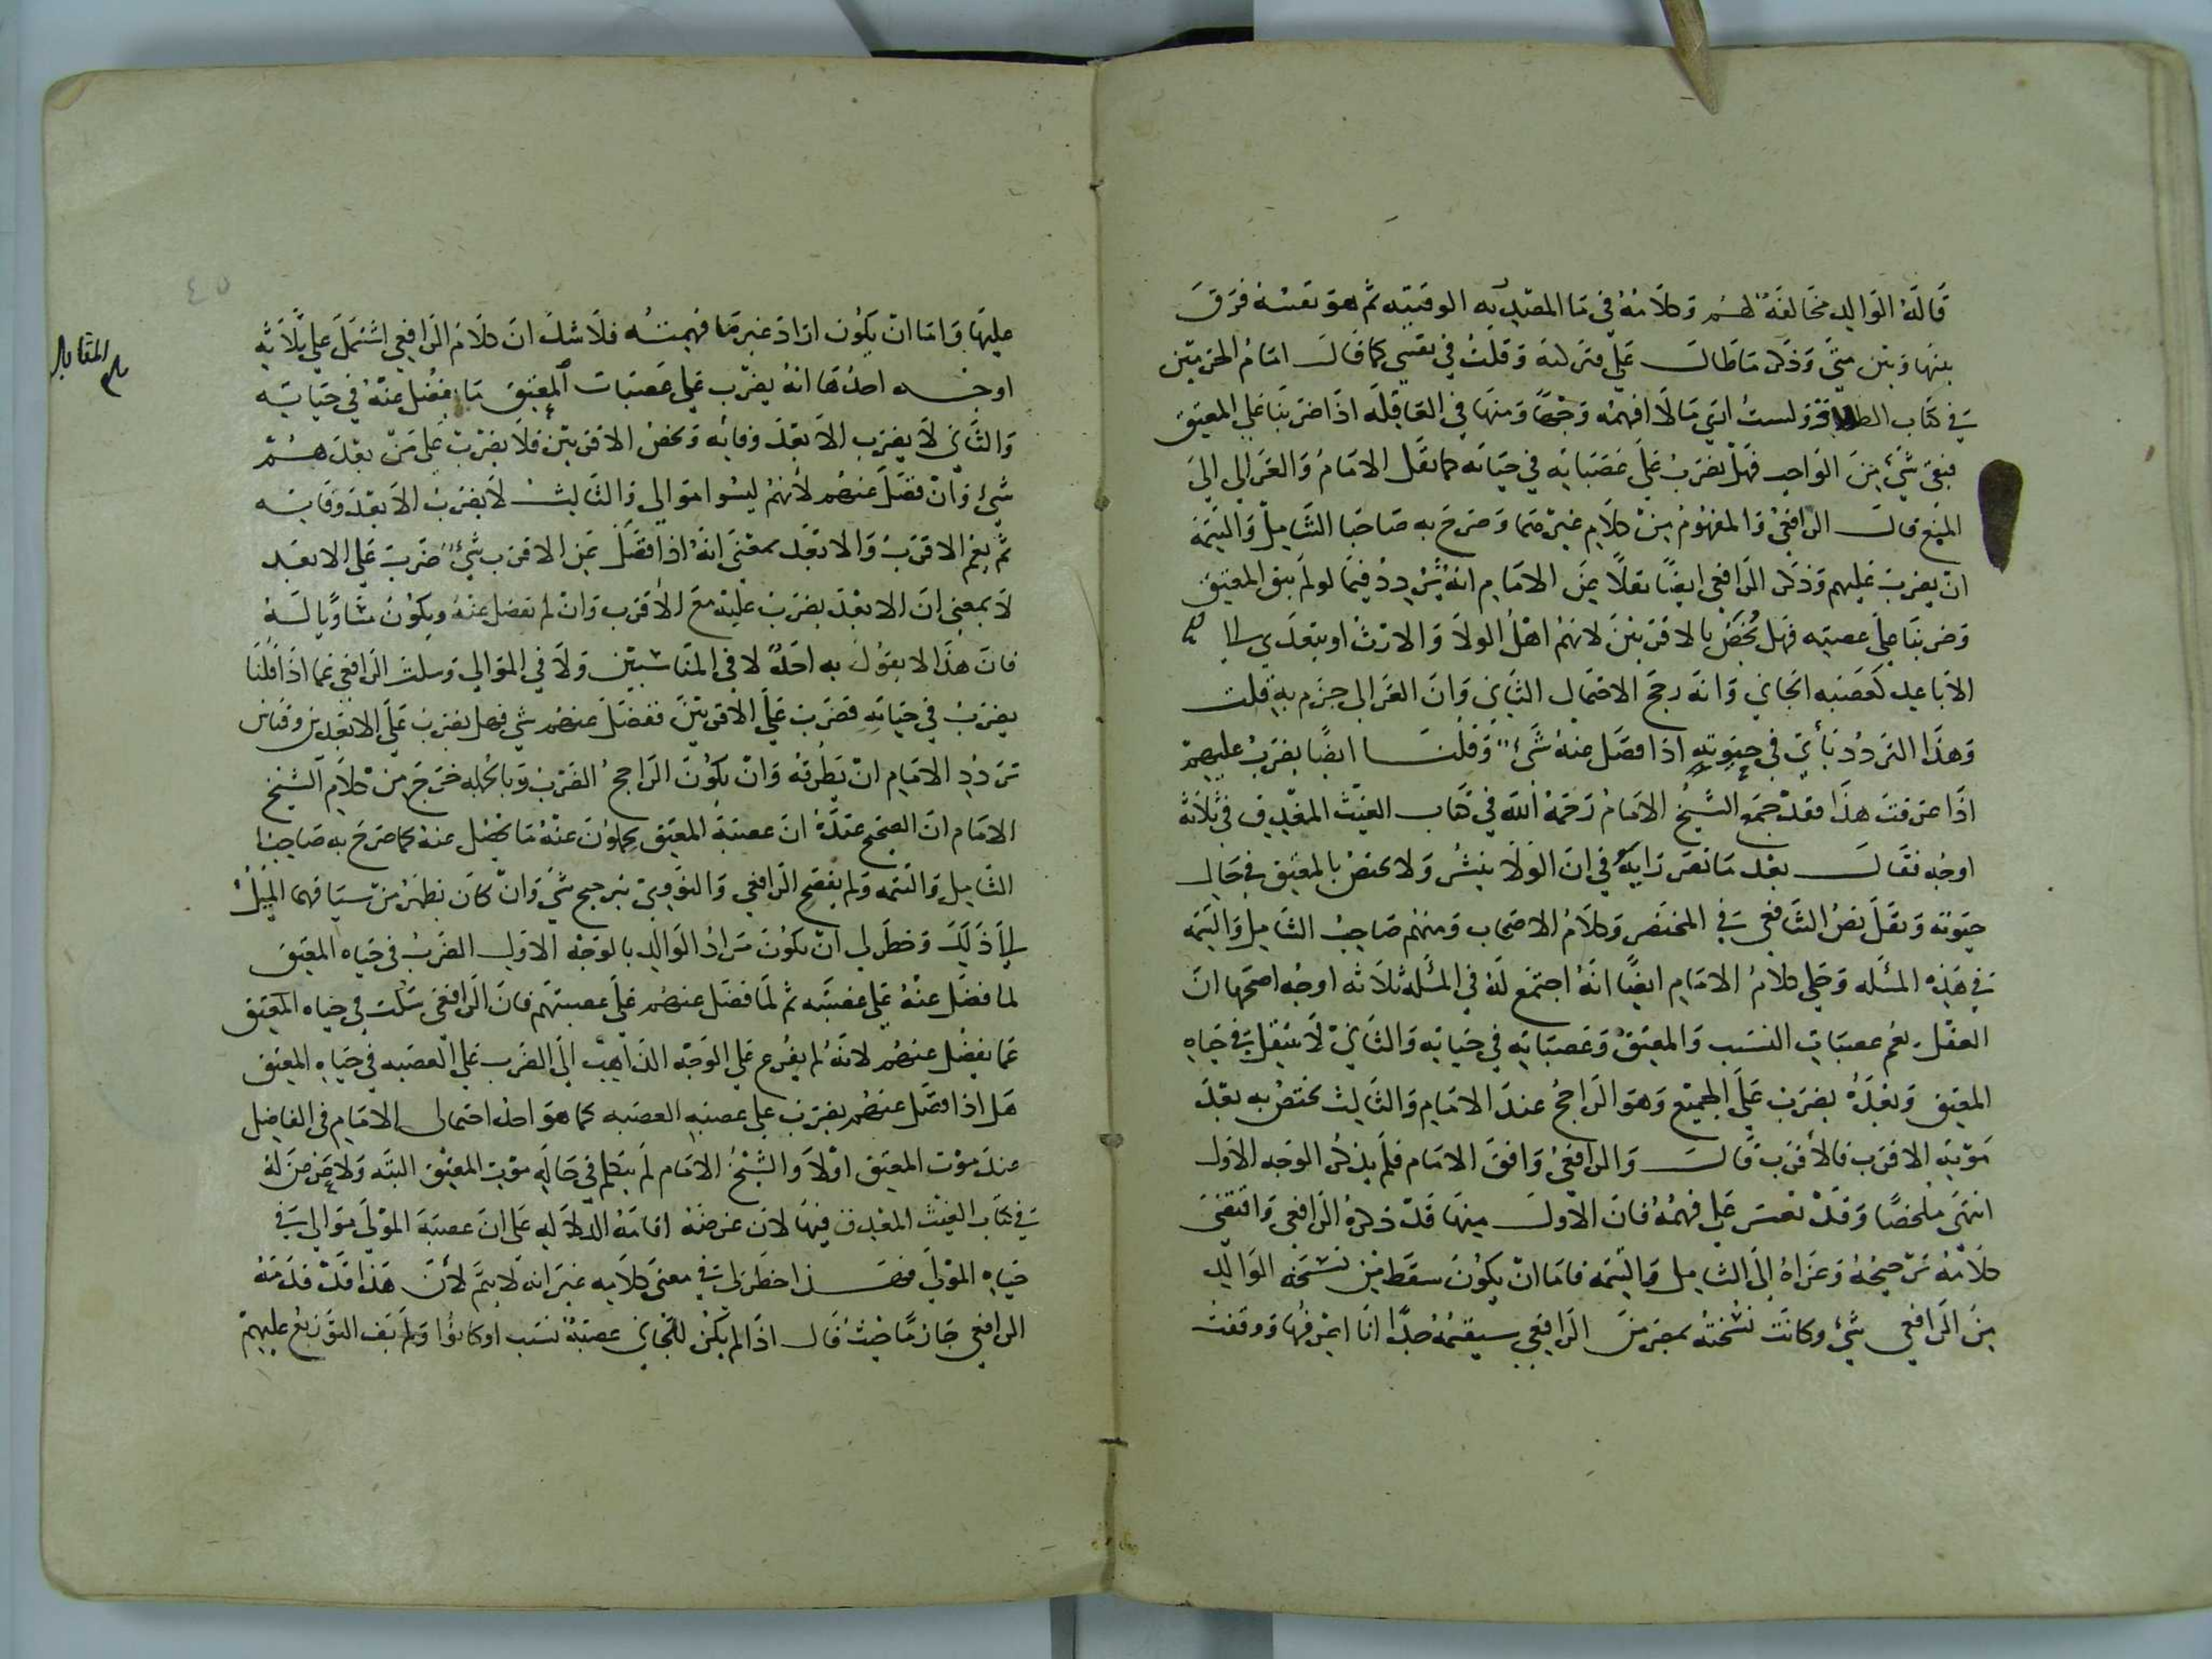 قاله الوالد مخالفة لهم وكلامه في ما المصدرية الوقتية ثم هو نفسه فرق
بينها وبين متى وذكر ما طال علي منزلته وقلت في نفسي كما قال امام الحرمين
في كتاب الطلاق ولست ارى ما لا افهمه وجها ومنها في العاقلة اذا ضربنا على المعتق
فبقي شيء من الواجب فهل يضرب على عصباته في حياته كما نقل الامام والغزالي الى
المنع قال الرافعي والمفهوم من كلام غيرهما وصرح به صاحبا الشامل والتتمة
ان يضرب عليهم وذكر الرافعي ايضا نقلا عن الامام انه تردد فيما لو لم يبق المعتق
وضربنا على عصبته فهل يختص بالاقربين لانهم اهل الولا والارث او يتعدى الى
الاباعد كعصبه الجاني وانه رجح الاحتمال الثاني وان الغزالي جزم به قلت
وهذا التردد يأتي في حيوته اذا فضل عنه شيء وقلنا ايضا يضرب عليهم
اذا عرفت هذا فقد جمع الشيخ الامام رحمه الله في كتاب الغيث المغدق في ثلاثة
اوجه فقال بعد ما نصر رايه في ان الولا ينشر ولا يختص بالمعتق في حال
حيوته ونقل نص الشافعي في المختصر وكلام الاصحاب ومنهم صاحب الشامل والتتمه
في هذه المسئله وحكى كلام الامام ايضا انه اجتمع له في المسئله ثلاثه اوجه اصحها ان
العقل يعم عصبات النسب والمعتق وعصباته في حياته والثاني لا ينتقل في حياه
المعتق وبعده يضرب على الجميع وهو الراجح عند الامام والثالث يختص به بعد
موته الاقرب فالاقرب قال والرافعي وافق الامام فلم يذكر الوجه الاول
انتهى ملخصا وقد تعسر علي فهمه فان الاول منها قد ذكره الرافعي واقتضى
كلامه ترجيحه وعزاه الى الشامل والتتمه فاما ان يكون سقط من نسخه الوالد
من الرافعي شيء وكانت نسخته بمصر من الرافعي سقيمه جدا انا اعرفها ووقفت
٤٥
بلغ المقابله
عليها واما ان يكون اراد غير ما فهمته فلا شك ان كلام الرافعي اشتمل على ثلاثه
اوجه احدها انه يضرب على عصبات المعتق ما يفضل عنه في حياته
والثاني لا يضرب الا بعد وفاته ويخص الاقربين فلا يضرب على من بعدهم
شيء وان فضل عنهم لانهم ليسوا موالي والثالث لا يضرب الا بعد وفاته
ثم يعم الاقرب والابعد بمعنى انه اذا فضل عن الاقرب شيء ضرب على الابعد
لا بمعنى ان الابعد يضرب عليه مع الاقرب وان لم يفضل عنه ويكون مساويا له
فان هذا لا يقول به احد لا في المناسبين ولا في الموالي وسكت الرافعي عما اذا قلنا
يضرب في حياته فضرب على الاقربين ففضل عنهم شي فهل يضرب على الابعدين وقياس
تردد الامام ان يطرقه وان يكون الراجح الضرب وبالجمله خرج من كلام الشيخ
الامام ان الصحيح عنده ان عصبة المعتق يحملون عنه ما يفضل عنه كما صرح به صاحبا
الشامل والتتمه ولم يفصح الرافعي والنووي بترجيح شي وان كان يظهر من سياقهما الميل
الى ذلك وخطر لي ان يكون مراد الوالد بالوجه الاول الضرب في حياه المعتق
لما فضل عنه على عصبته ثم لما فضل عنهم على عصبتهم فان الرافعي سكت في حياه المعتق
عما يفضل عنهم لانه لم يفرع على الوجه الذاهب الى الضرب على العصبه في حياه المعتق
هل اذا فضل عنهم يضرب على عصبه العصبه كما هو احد احتمالي الامام في الفاضل
عند موت المعتق اولا والشيخ الامام لم يتكلم في حاله موت المعتق البته ولا غرض له
في كتاب الغيث المغدق فيها لان غرضه اقامه الدلاله على ان عصبة المولى موالي في
حياه المولى فهذا خطر لي في معنى كلامه غير انه لا يتم لأن هذا قد قدمه
الرافعي جازما حيث قال اذا لم يكن للجاني عصبة نسب او كانوا ولم يف التوزيع عليهم